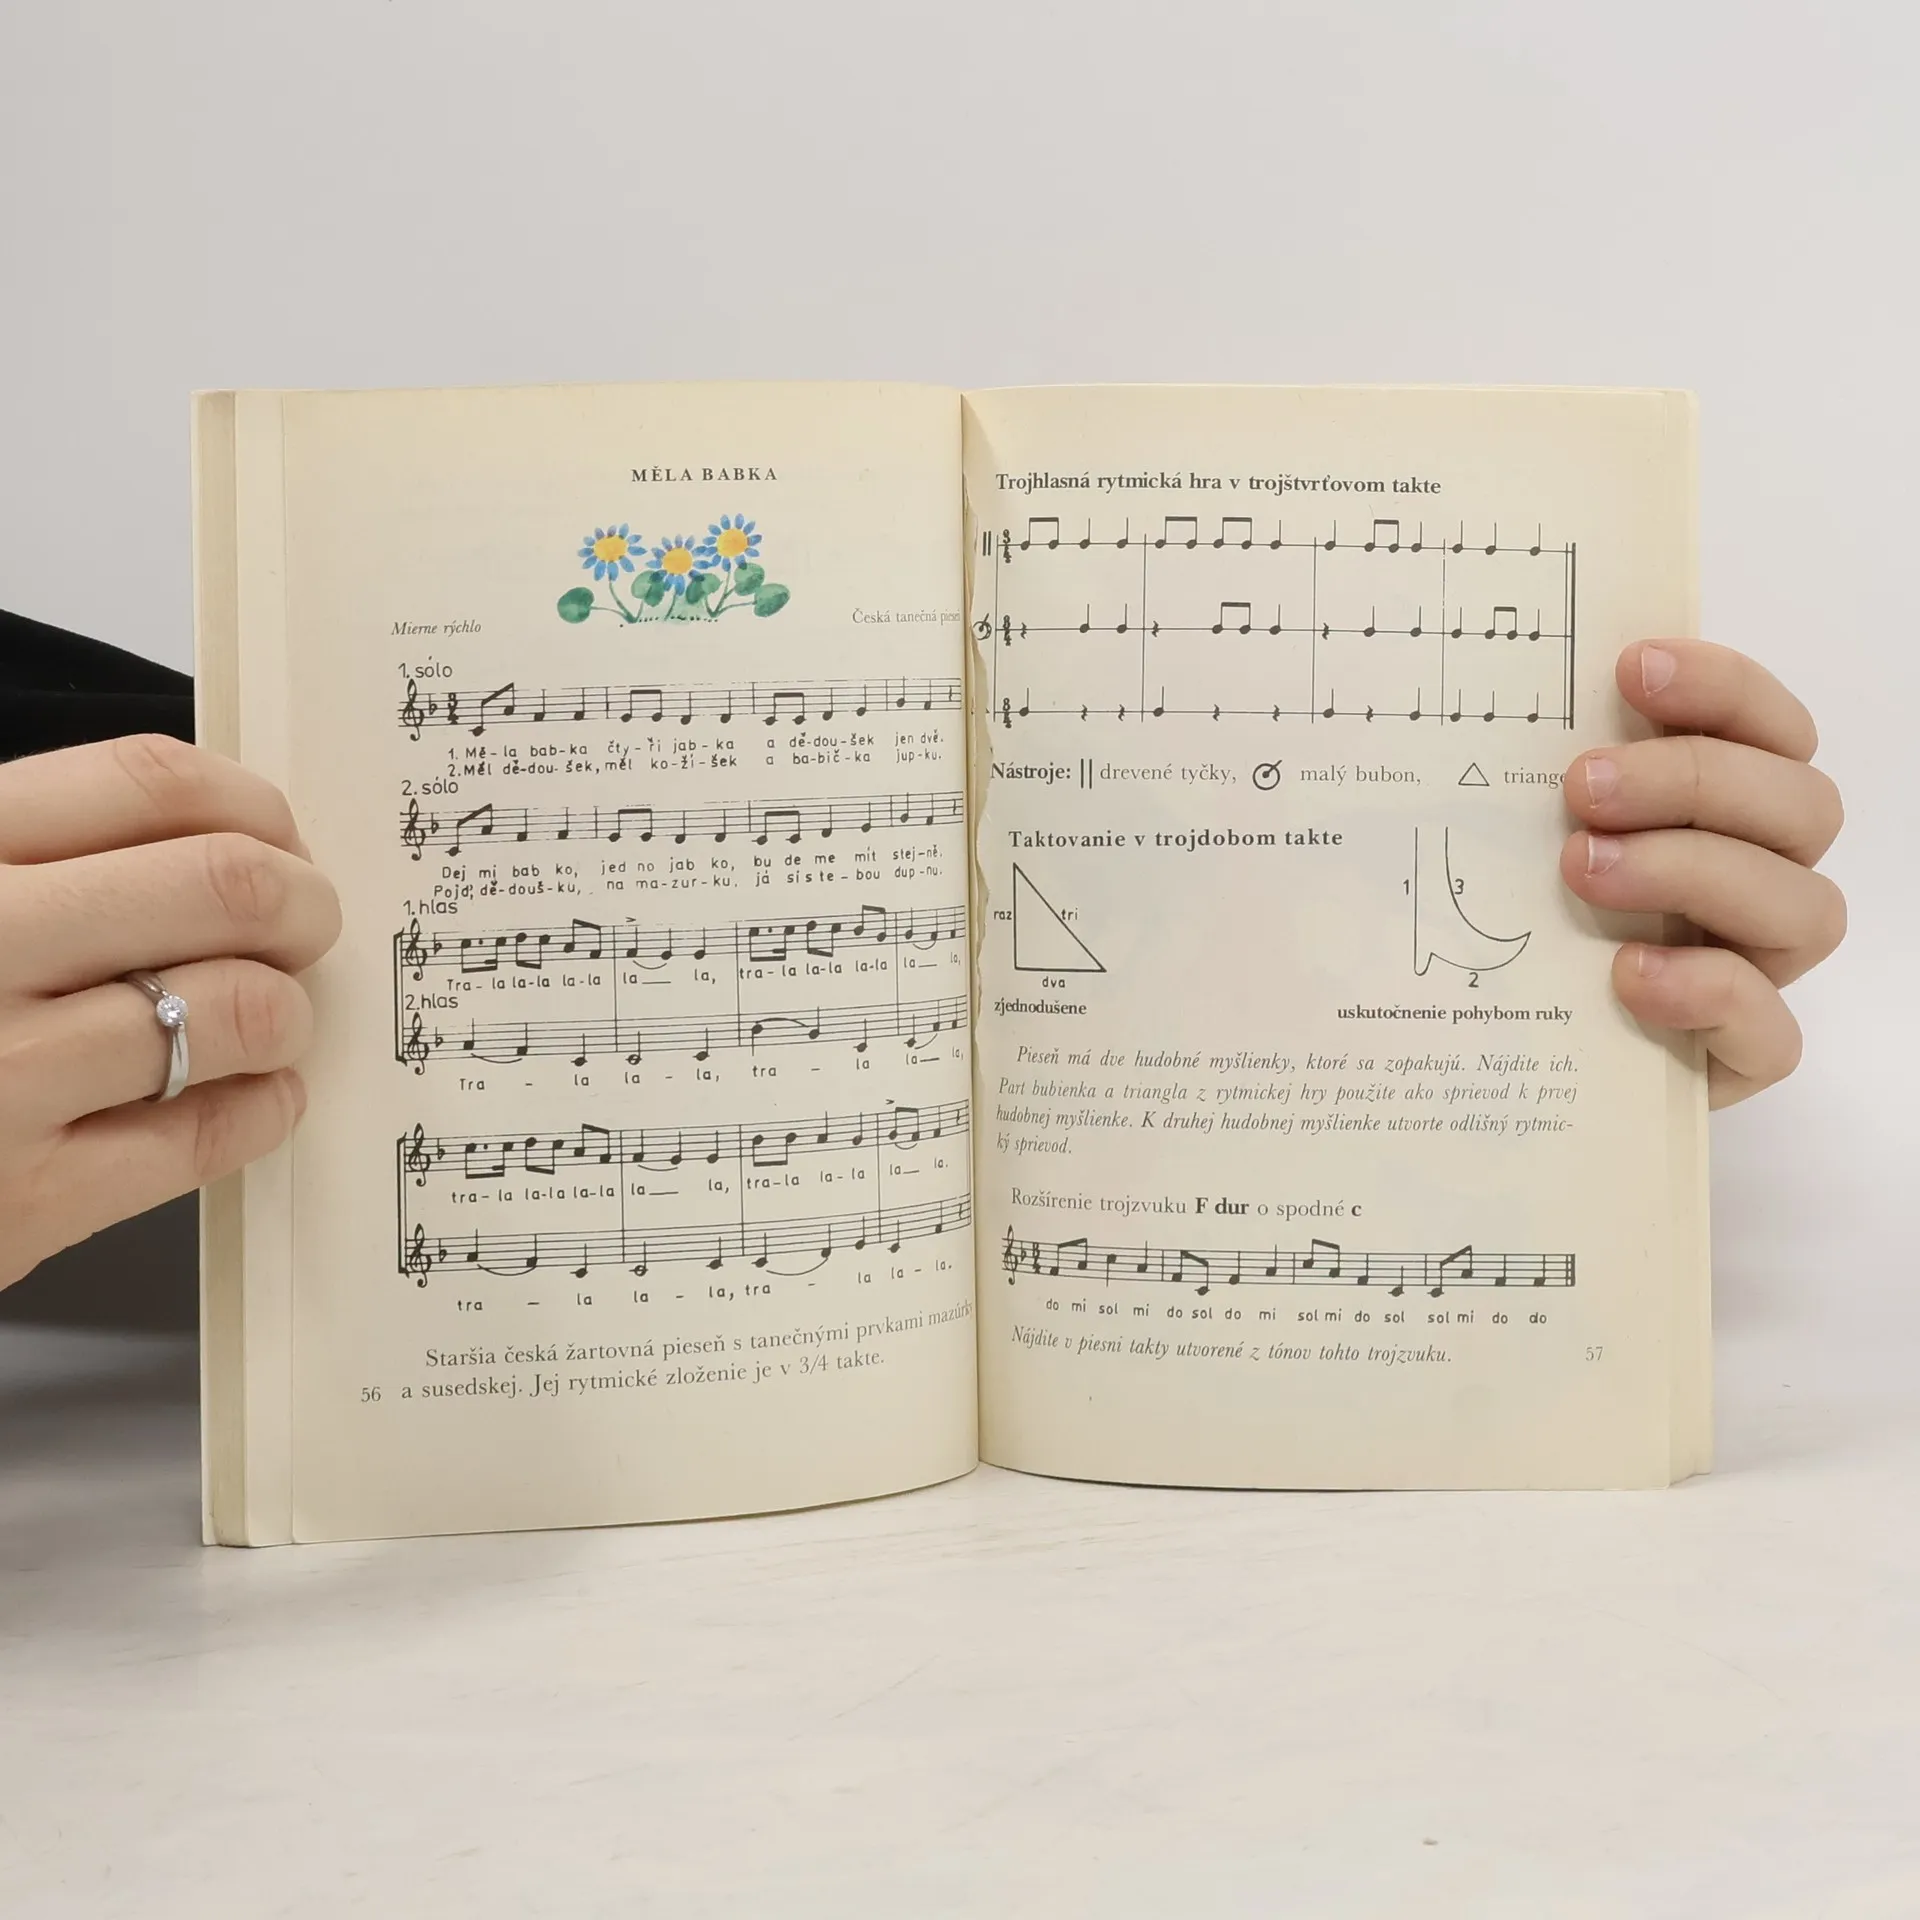 MĚLA BABKA
Mierne rýchlo
Česká tanečná
1. sólo
1. Mě-la bab-ka čty-ři jab-ka a dě-dou-šek jen dvě.
2. Měl dě-dou-šek, měl ko-ží-šek a ba-bič-ka jup-ku.
2. sólo
Dej mi bab ko, jed no jab ko, bu de me mít stej-ně.
Pojď, dě-douš-ku, na ma-zur-ku, já si s te-bou dup-nu.
1. hlas
Tra-la la-la la-la la la, tra-la la-la la-la la la,
2. hlas
Tra - la la - la, tra - la la la,
tra-la la-la la-la la la, tra-la la-la la la.
tra - la la - la, tra - la la - la.
Staršia česká žartovná pieseň s tanečnými prvkami mazúrky
a susedskej. Jej rytmické zloženie je v 3/4 takte.
56
Trojhlasná rytmická hra v trojštvrťovom takte
3/4
3/4
3/4
Nástroje: drevené tyčky, malý bubon,
Taktovanie v trojdobom takte
raz tri
dva
zjednodušene
1 3
2
uskutočnenie pohybom ruky
Pieseň má dve hudobné myšlienky, ktoré sa zopakujú. Nájdite ich.
Part bubienka a triangla z rytmickej hry použite ako sprievod k prvej
hudobnej myšlienke. K druhej hudobnej myšlienke utvorte odlišný rytmic-
ký sprievod.
Rozšírenie trojzvuku F dur o spodné c
do mi sol mi do sol do mi sol mi do sol sol mi do do
Nájdite v piesni takty utvorené z tónov tohto trojzvuku.
57